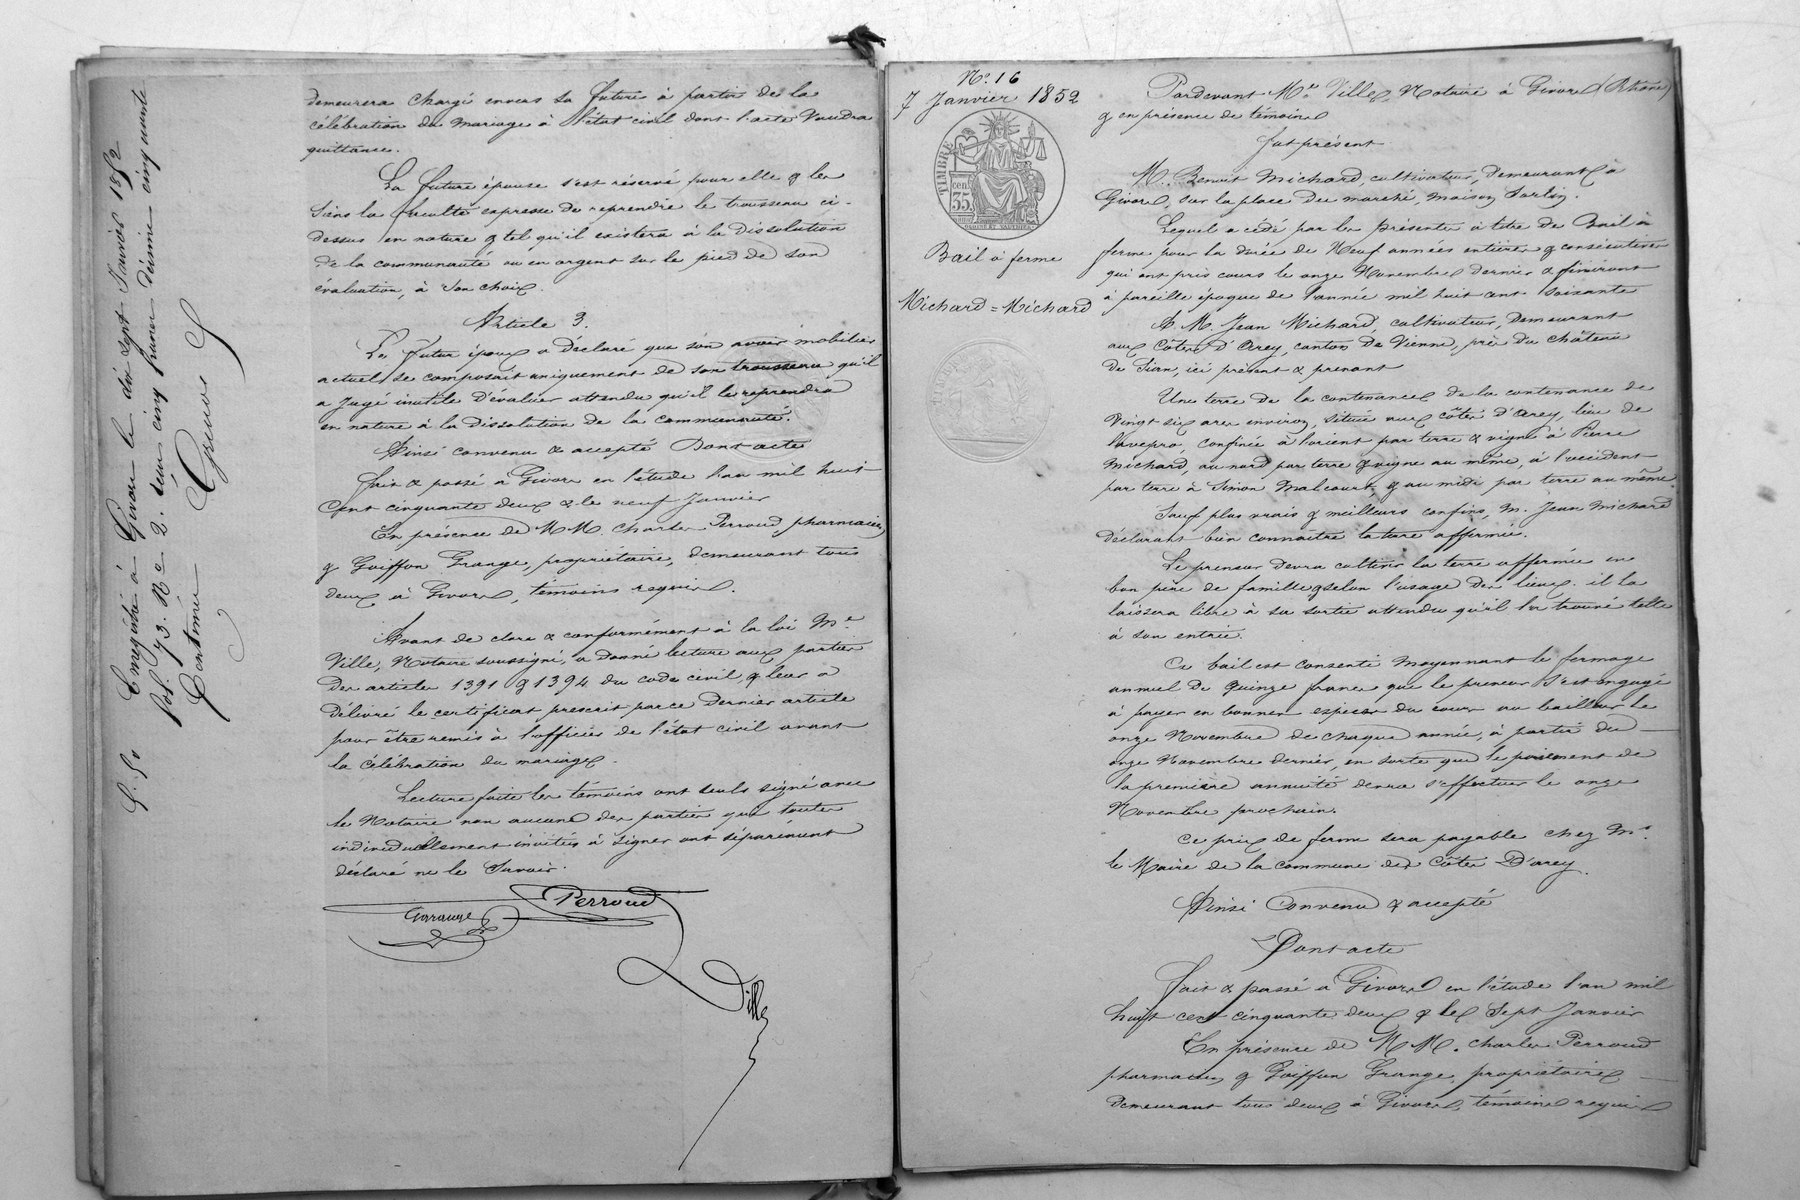 demeurera chargé envers sa future à partir de la
célébration du mariage à l'état civil dont l'acte vaudra
quittance.
La future épouse s'est réservé pour elle & les
siens la faculté expresse de reprendre le trousseau ci-
dessus en nature & tel qu'il existera à la dissolution
de la communauté ou en argent sur le pied de son
évaluation, à son choix.
Article 3.
Le futur époux a déclaré que son avoir mobilier
actuel se composait uniquement de son trousseau qu'il
a jugé inutile d'évaluer attendu qu'il le reprendra
en nature à la dissolution de la communauté.
Ainsi convenu & accepté Dont acte
Fait & passé à Givors en l'étude l'an mil huit
cent cinquante deux & le neuf Janvier
En présence de MM. Charles Perroud pharmacien
& Goiffon Grange, propriétaire, demeurant tous
deux à Givors, témoins requis.
Avant de clore & conformément à la loi Me
Ville, Notaire soussigné, a donné lecture aux parties
des articles 1391 & 1394 du code civil, & leur a
délivré le certificat prescrit par ce dernier article
pour être remis à l'officier de l'état civil avant
la célébration du mariage.
Lecture faite les témoins ont seuls signé avec
le Notaire non aucune des parties qui toutes
individuellement invitées à signer ont séparément
déclaré ne le savoir.
Grange
Perroud
Ville
Enregistré à Givors le dix sept Janvier 1852
fol. 73. Re 2. reçu cinq francs décime cinquante
centimes
N° 16
7 Janvier 1852
TIMBRE
35
cen.
Bail à ferme
Michard = Michard
Pardevant Me Ville, Notaire à Givors (Rhône)
& en présence de témoins
fut présent
M. Benoit Michard, cultivateur, demeurant à
Givors, sur la place du marché, maison
Lequel a cédé par les présentes à titre de Bail à
ferme pour la durée de Neuf années entières & consécutives
qui ont pris cours le onze Novembre dernier & finiront
à pareille époque de l'année mil huit cent soixante
A M. Jean Michard, cultivateur, demeurant
aux Côtes d'Arey, canton de Vienne, près du château
de ici présent & prenant
Une terre de la contenance de la contenance de
vingt six ares environ, située aux côtes d'Arey, lieu de
confinée à l'orient par terre & vigne à Pierre
Michard, au nord par terre & vigne au même, à l'occident
par terre à Simon Malcourt, & au midi par terre au même
Sauf plus vrais & meilleurs confins, M. Jean Michard
déclarant bien connaître la terre affermée.
Le preneur devra cultiver la terre affermée en
bon père de famille & selon l'usage des lieux. il la
laissera libre à sa sortie attendu qu'il l'a trouvée telle
à son entrée.
Ce bail est consenti moyennant le fermage
annuel de quinze francs que le preneur s'est engagé
à payer en bonnes espèces du cours au bailleur le
onze Novembre de chaque année, à partir du
onze Novembre dernier, en sorte que le paiement de
la première annuité devra s'effectuer le onze
Novembre prochain.
Ce prix de ferme sera payable chez Mr.
le Maire de la commune des Côtes D'arey.
Ainsi Convenu & accepté
Dont acte
Fait & passé à Givors en l'étude l'an mil
huit cent cinquante deux & le Sept Janvier
En présence de MM. Charles Perroud
pharmacien & Goiffon Grange, propriétaire
demeurant tous deux à Givors, témoins requis